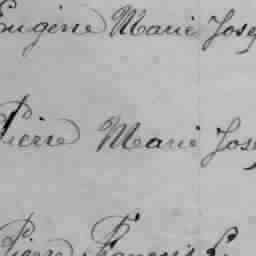 Eugène Marie Jose
Pierre Marie Jose
Pierre François